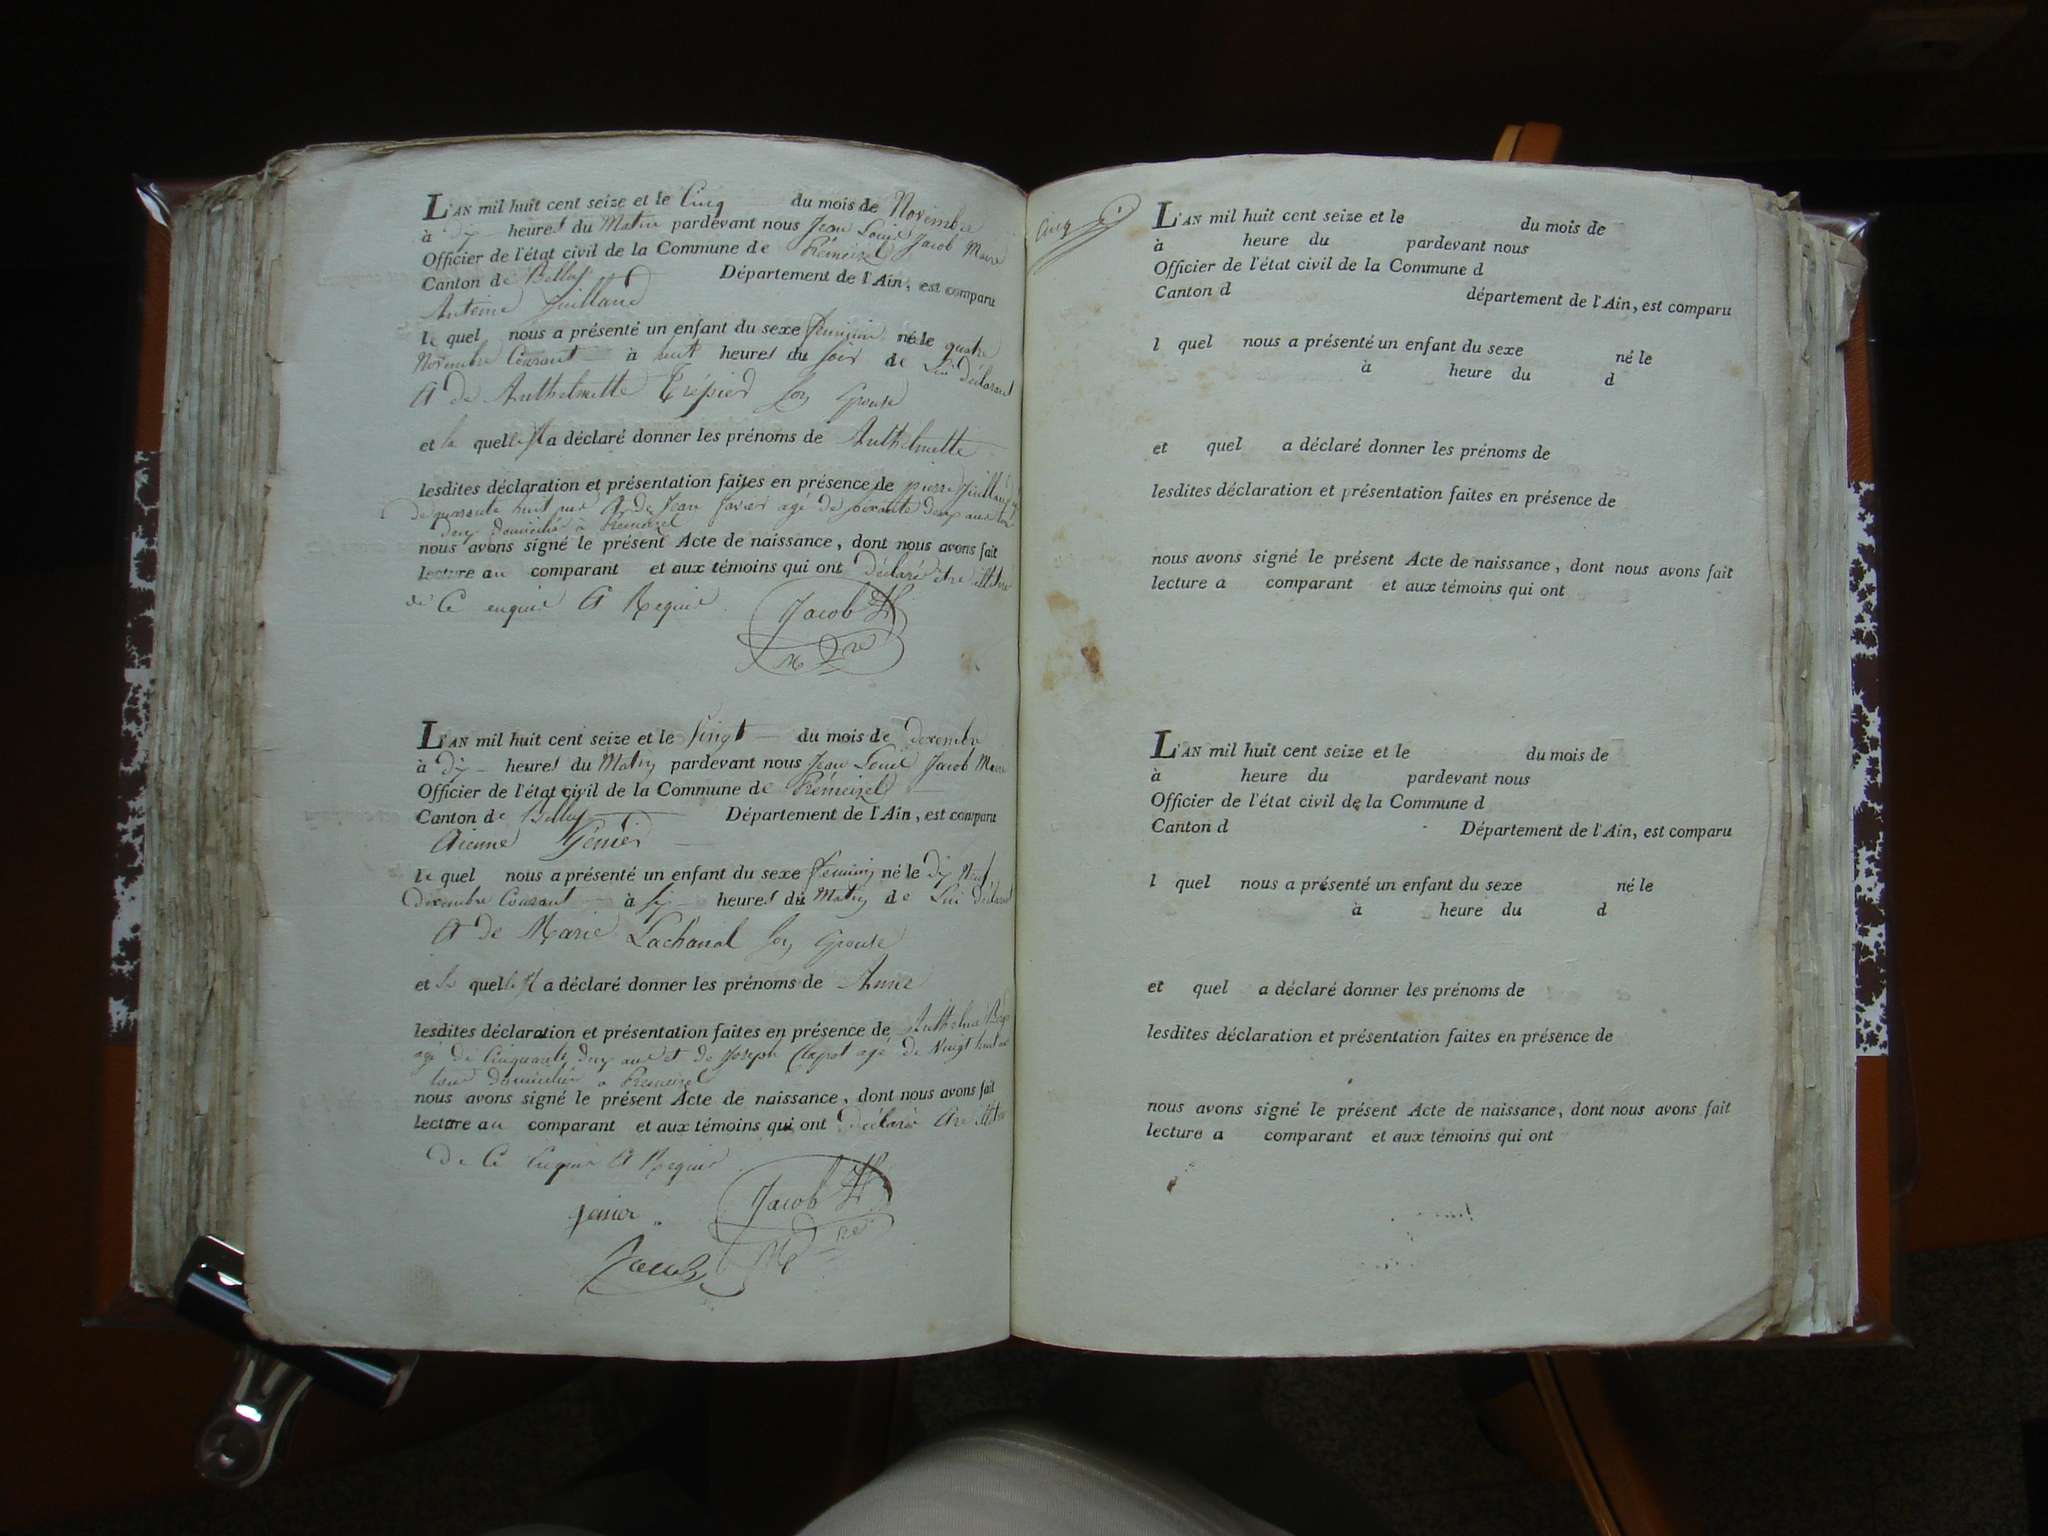 L'AN mil huit cent seize et le Cinq du mois de Novembre
à dix heures du Matin pardevant nous Jean Louis Jacob Maire
Officier de l'état civil de la Commune de Prémeizel
Canton de Belley Département de l'Ain, est comparu
Antoine Juilland
le quel nous a présenté un enfant du sexe feminin né le quatre
Novembre Courant à huit heures du soir de Lui déclarant
et de Anthelmette Trépier son Epouse
et quel a déclaré donner les prénoms de Anthelmette
lesdites déclaration et présentation faites en présence de pierre Juilland
de quarante huit ans et de Jean agé de soixante deux ans
domicilié à Prémeizel
nous avons signé le présent Acte de naissance, dont nous avons fait
lecture au comparant et aux témoins qui ont déclaré être illitere
de Ce enquis et Requis
Jacob
Mre
L'AN mil huit cent seize et le vingt du mois de Decembre
à dix heures du Matin pardevant nous Jean Louis Jacob Maire
Officier de l'état civil de la Commune de Prémeizel
Canton de Belley Département de l'Ain, est comparu
Génier
le quel nous a présenté un enfant du sexe feminin né le dix Neuf
Decembre Courant à six heures du Matin de Lui déclarant
et de Marie Lachanal son Epouse
et quel a déclaré donner les prénoms de
lesdites déclaration et présentation faites en présence de Anthelme
agé de Cinquante deux ans et de Joseph Clapot agé de Vingt huit ans
tous domicilié à Prémeizel
nous avons signé le présent Acte de naissance, dont nous avons fait
lecture au comparant et aux témoins qui ont déclaré être illitere
de Ce Enquis et Requis
genier
Jacob
Mre
Jacob
Cinq
L'AN mil huit cent seize et le du mois de
à heure du pardevant nous
Officier de l'état civil de la Commune d
Canton d département de l'Ain, est comparu
l quel nous a présenté un enfant du sexe né le
à heure du d
et quel a déclaré donner les prénoms de
lesdites déclaration et présentation faites en présence de
nous avons signé le présent Acte de naissance, dont nous avons fait
lecture a comparant et aux témoins qui ont
L'AN mil huit cent seize et le du mois de
à heure du pardevant nous
Officier de l'état civil de la Commune d
Canton d Département de l'Ain, est comparu
l quel nous a présenté un enfant du sexe né le
à heure du d
et quel a déclaré donner les prénoms de
lesdites déclaration et présentation faites en présence de
nous avons signé le présent Acte de naissance, dont nous avons fait
lecture a comparant et aux témoins qui ont